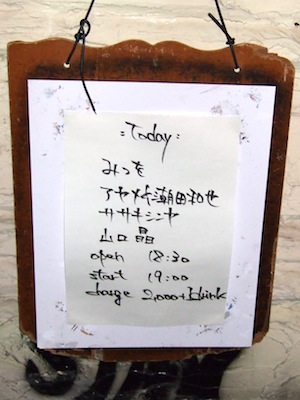 =Today=
みつを
アヤメ+潮田和也
ササキシンヤ
山口 晶
open 18:30
start 19:00
charge 2,000+1drink